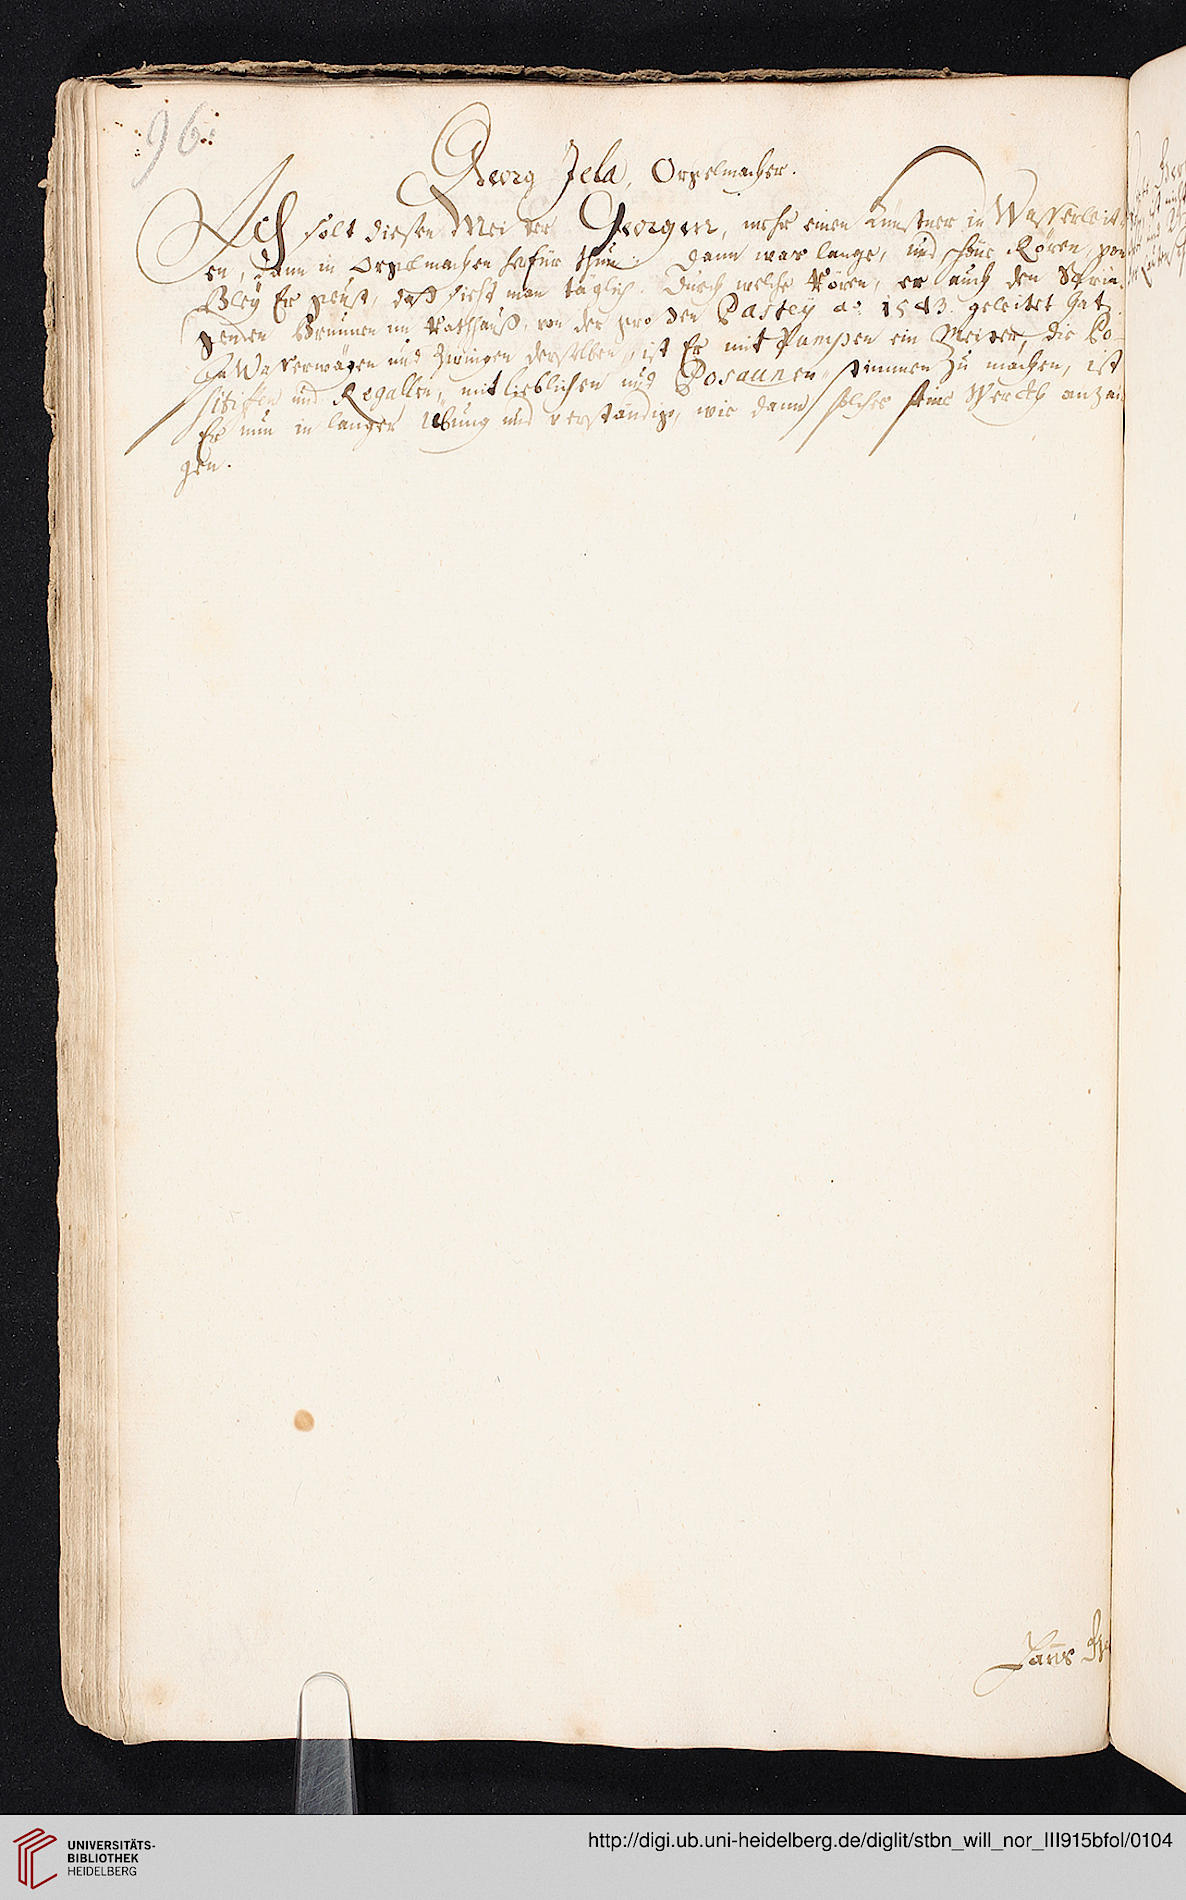 96.
Georg Jela, Orgelmacher.
Ich solt diesen Meister Georgen, mehr einen Künstner in Wasserleit-
en, dann in Orgelmachen herfür thun. Dann was lange, und schöne Rören, von
Bley Er geust, daß siehst man täglich. Durch welche Rören, er auch den Sprin-
genden Brunnen im Rathhauß, von der Pastey ao. 1543. geleitet hat.
In Waserwägen und Zwingen derselben, ist Er mit Pumpen ein Meister, die Po-
sitiffen und Regallen, mit lieblichen und Posaunen stimmen Zu machen, ist
Er nun in langer Übung und verständig, wie dann solches seine Werckh anzai-
gen.
Hanns
UNIVERSITÄTS-
BIBLIOTHEK
HEIDELBERG
http://digi.ub.uni-heidelberg.de/diglit/stbn_will_nor_III915bfol/0104